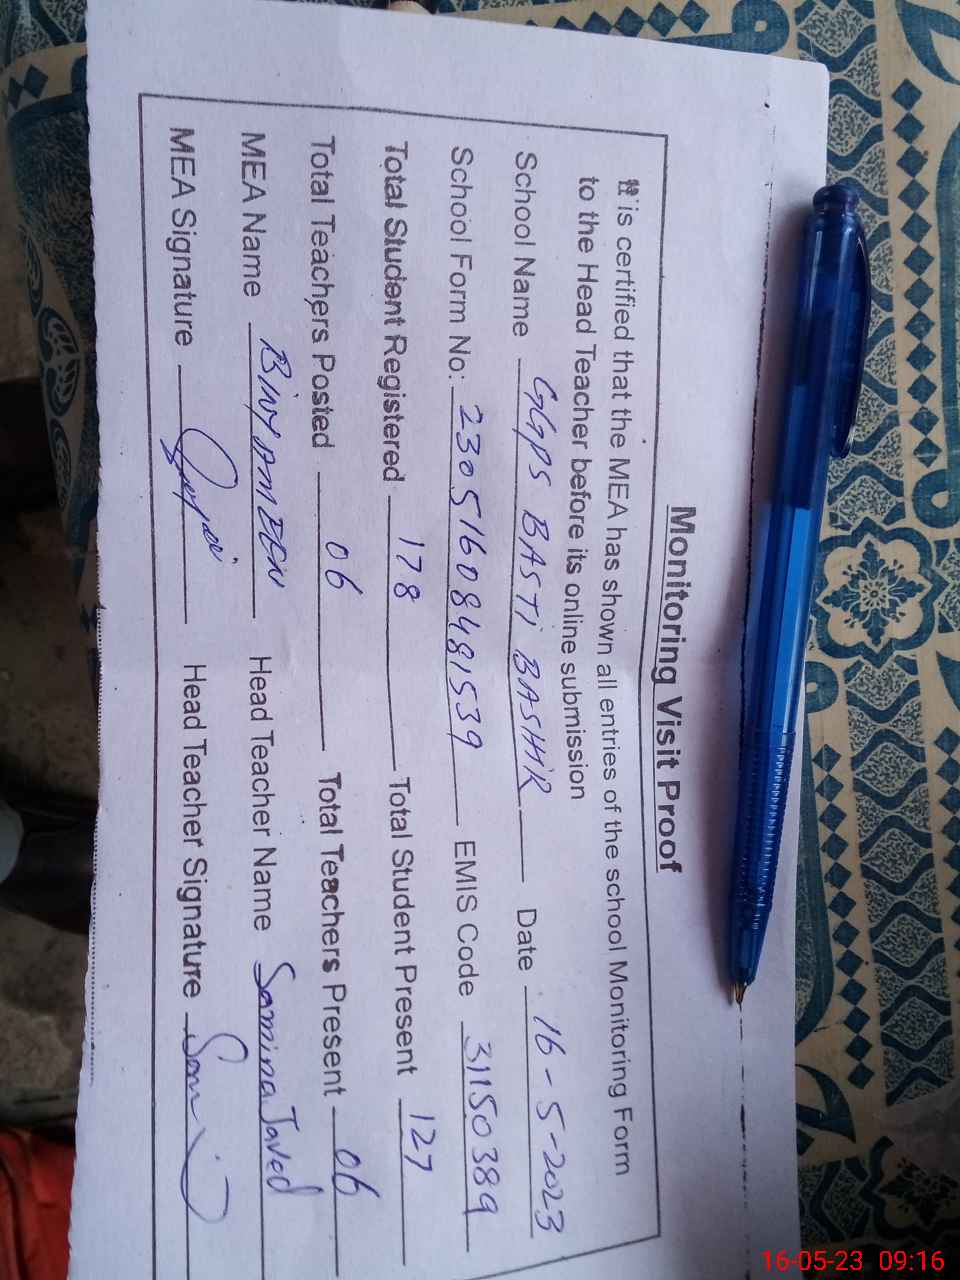 Monitoring Visit Proof
It is certified that the MEA has shown all entries of the school Monitoring Form
to the Head Teacher before its online submission
School Name GGPS BASTI BASHIR Date 16-5-2023
School Form No: 23051608481539 EMIS Code 31150389
Total Student Registered 178 Total Student Present 127
Total Teachers Posted 06 Total Teachers Present 06
MEA Name Head Teacher Name Samina Javed
MEA Signature Head Teacher Signature
16-05-23 09:16